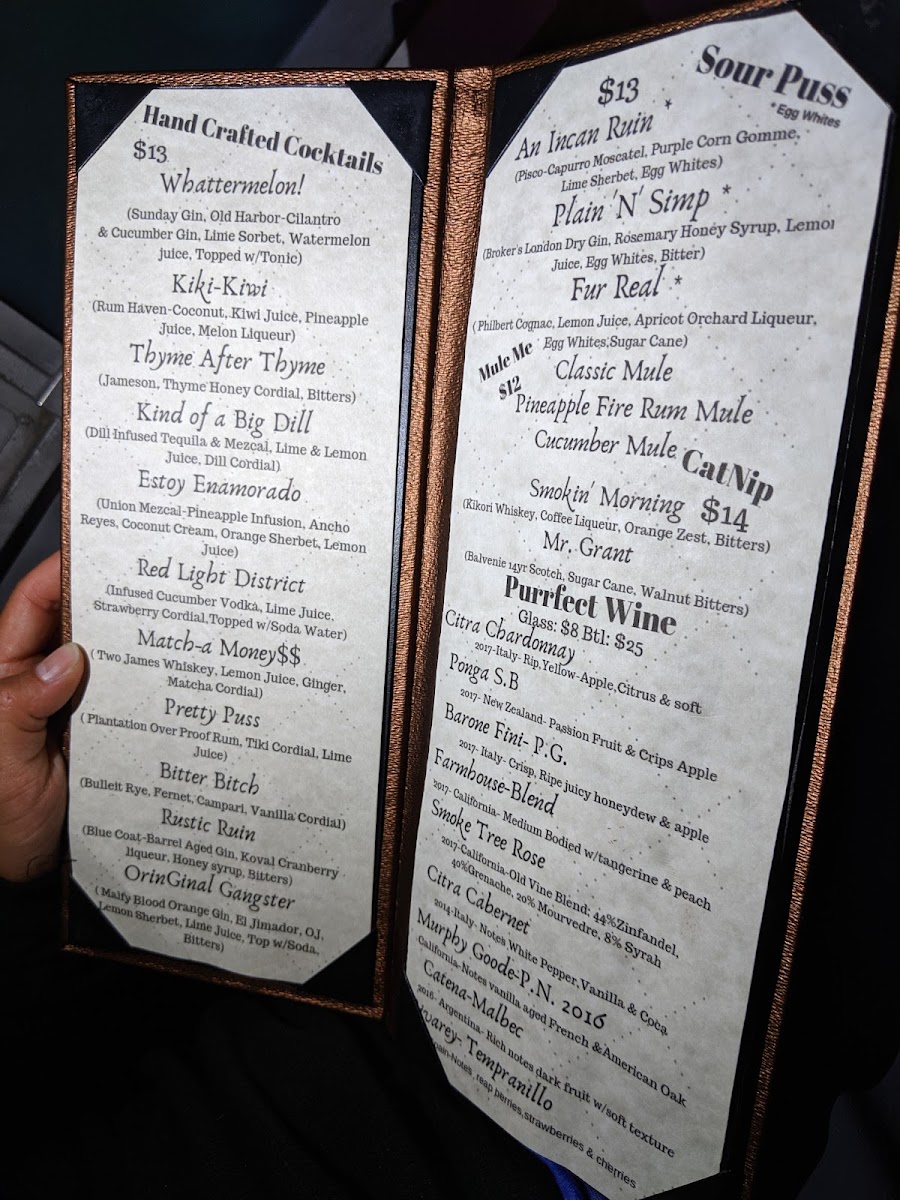 Hand Crafted Cocktails
$13
Whattermelon!
(Sunday Gin, Old Harbor-Cilantro
& Cucumber Gin, Lime Sorbet, Watermelon
juice, Topped w/Tonic)
Kiki-Kiwi
(Rum Haven-Coconut, Kiwi Juice, Pineapple
Juice, Melon Liqueur)
Thyme After Thyme
(Jameson, Thyme Honey Cordial, Bitters)
Kind of a Big Dill
(Dill Infused Tequila & Mezcal, Lime & Lemon
Juice, Dill Cordial)
Estoy Enamorado
(Union Mezcal-Pineapple Infusion, Ancho
Reyes, Coconut Cream, Orange Sherbet, Lemon
Juice)
Red Light District
(Infused Cucumber Vodka, Lime Juice,
Strawberry Cordial,Topped w/Soda Water)
Match-a Money$$
( Two James Whiskey, Lemon Juice, Ginger,
Matcha Cordial)
Pretty Puss
( Plantation Over Proof Rum, Tiki Cordial, Lime
Juice)
Bitter Bitch
(Bulleit Rye, Fernet, Campari, Vanilla Cordial)
Rustic Ruin
(Blue Coat-Barrel Aged Gin, Koval Cranberry
liqueur, Honey syrup, Bitters)
OrinGinal Gangster
( Malfy Blood Orange Gin, El Jimador, OJ,
Lemon Sherbet, Lime Juice, Top w/Soda,
Bitters)
Sour Puss
* Egg Whites
$13
An Incan Ruin *
(Pisco-Capurro Moscatel, Purple Corn Gomme,
Lime Sherbet, Egg Whites)
Plain 'N' Simp *
(Broker's London Dry Gin, Rosemary Honey Syrup, Lemon
Juice, Egg Whites, Bitter)
Fur Real *
( Philbert Cognac, Lemon Juice, Apricot Orchard Liqueur,
Egg Whites,Sugar Cane)
Mule Me
$12
Classic Mule
Pineapple Fire Rum Mule
Cucumber Mule
CatNip
$14
Smokin' Morning
(Kikori Whiskey, Coffee Liqueur, Orange Zest, Bitters)
Mr. Grant
(Balvenie 14yr Scotch, Sugar Cane, Walnut Bitters)
Purrfect Wine
Glass: $8 Btl: $25
Citra Chardonnay
2017-Italy- Rip,Yellow-Apple,Citrus & soft
Ponga S.B
2017- New Zealand- Passion Fruit & Crips Apple
Barone Fini- P.G.
2017- Italy- Crisp, Ripe juicy honeydew & apple
Farmhouse-Blend
2017- California- Medium Bodied w/tangerine & peach
Smoke Tree Rose
2017-California-Old Vine Blend; 44%Zinfandel,
40%Grenache, 20% Mourvedre, 8% Syrah
Citra Cabernet
2014-Italy- Notes White Pepper,Vanilla & Coca
Murphy Goode-P.N. 2016
California- Notes vanilla aged French &American Oak
Catena-Malbec
2016- Argentina- Rich notes dark fruit w/soft texture
Tempranillo
strawberries & cherries